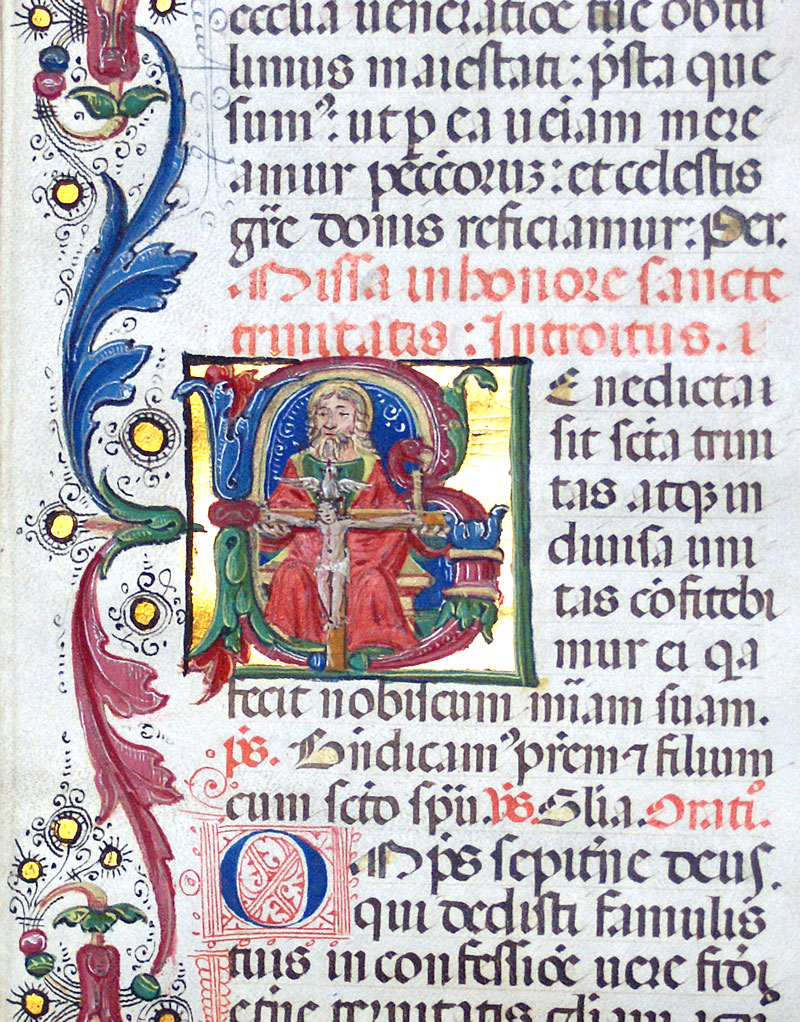 ecclia ueneratioe tue obtu
limus maiestati: p̄sta que
sum⁹: ut ꝑ ea ueiam mere
amur pccoruz: et celestis
gr̄e donis reficiamur: Per.
Missa in honore sancte
trinitatis: Introitus.
Benedicta
sit sc̄ta trini
tas atqȝ in
diuisa uni
tas cōfitebi
mur ei qa
fecit nobiscum mīam suam.
p̄s. Bn̄dicam⁹ pr̄em ⁊ filium
cum sc̄to sp̄u. V̄s. Glia. Oratio.
OMp̄s sepitn̄e deus.
qui dedisti famulis
tuis in confessioe uere fidei
etn̄e trinitatis gliam